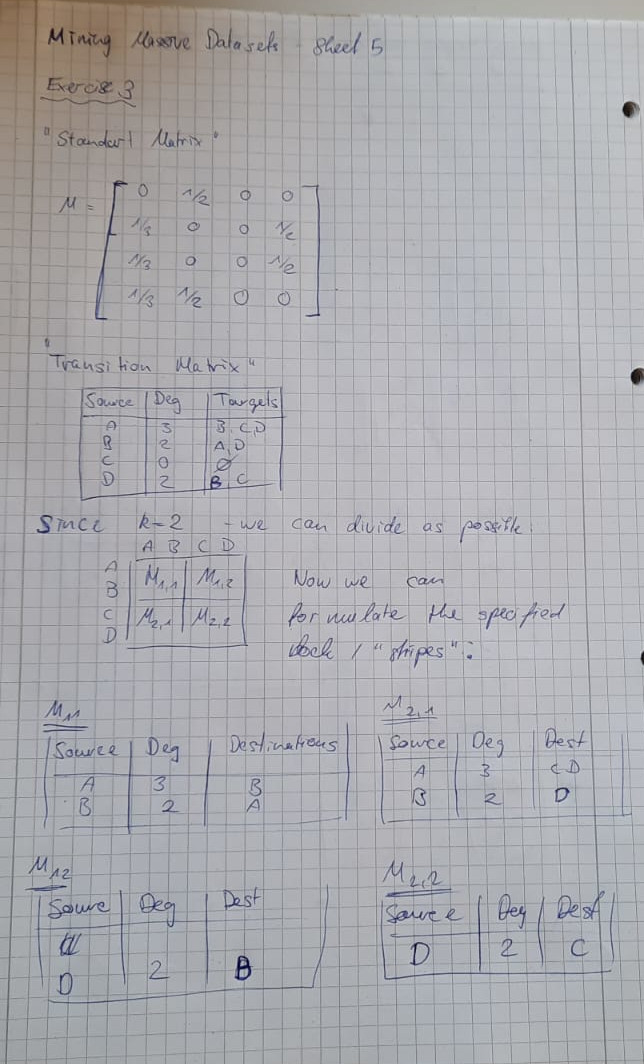 Mining Massive Datasets - Sheet 5
Exercise 3
"Standart Matrix"
M =
0 1/2 0 0
1/3 0 0 1/2
1/3 0 0 1/2
1/3 1/2 0 0
"Transition Matrix"
Source Deg Targets
A 3 B, C, D
B 2 A, D
C 0 ∅
D 2 B, C
Since k=2 - we can divide as possible:
A B C D
A
B M1,1 M1,2 Now we can
C M2,1 M2,2 formulate the specified
D / "stripes":
M11
Source Deg Destinations
A 3 B
B 2 A
M2,1
Source Deg Dest
A 3 C D
B 2 D
M12
Source Deg Dest
D 2 B
M2,2
Source Deg Dest
D 2 C